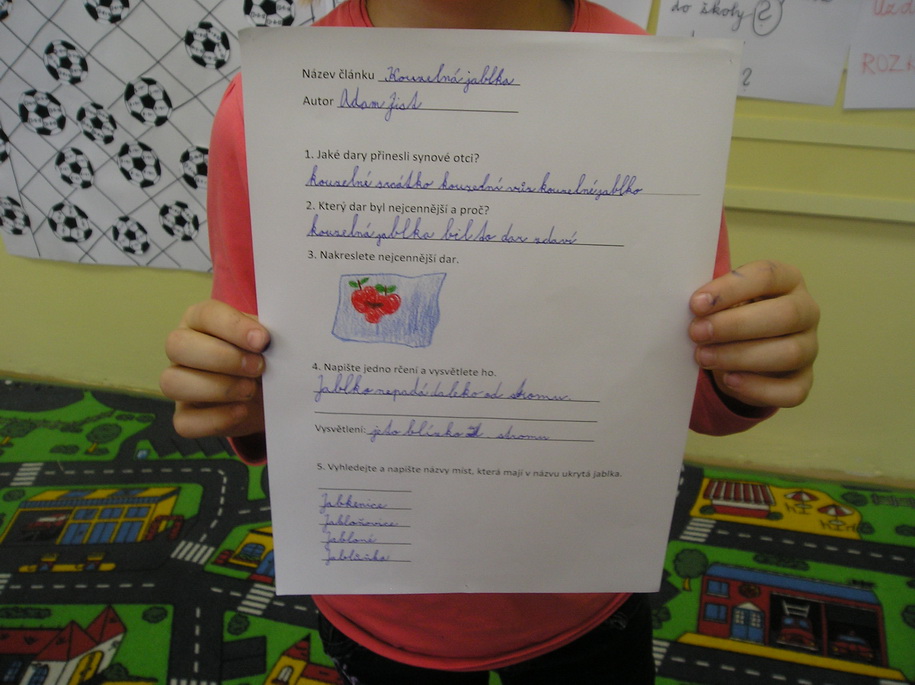 do školy 2
?
ROZ
Název článku Kouzelná jablka
Autor Adam Jist
1. Jaké dary přinesli synové otci?
kouzelné srcátko kouzelní vůz kouzelné jablko
2. Který dar byl nejcennější a proč?
kouzelná jablka bil to dar zdraví
3. Nakreslete nejcennější dar.
4. Napište jedno rčení a vysvětlete ho.
Jablko nepadá daleko od stromu
Vysvětlení: je to blízko stromu
5. Vyhledejte a napište názvy míst, která mají v názvu ukrytá jablka.
Jabkenice
Jabloňovice
Jabloné
Jablůňka